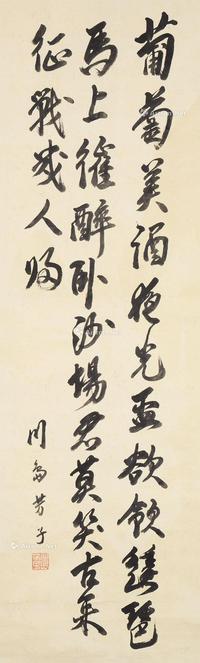 葡萄美酒夜光盃欲飲琵琶
馬上催醉卧沙場君莫笑古来
征戰幾人帰
川島芳子